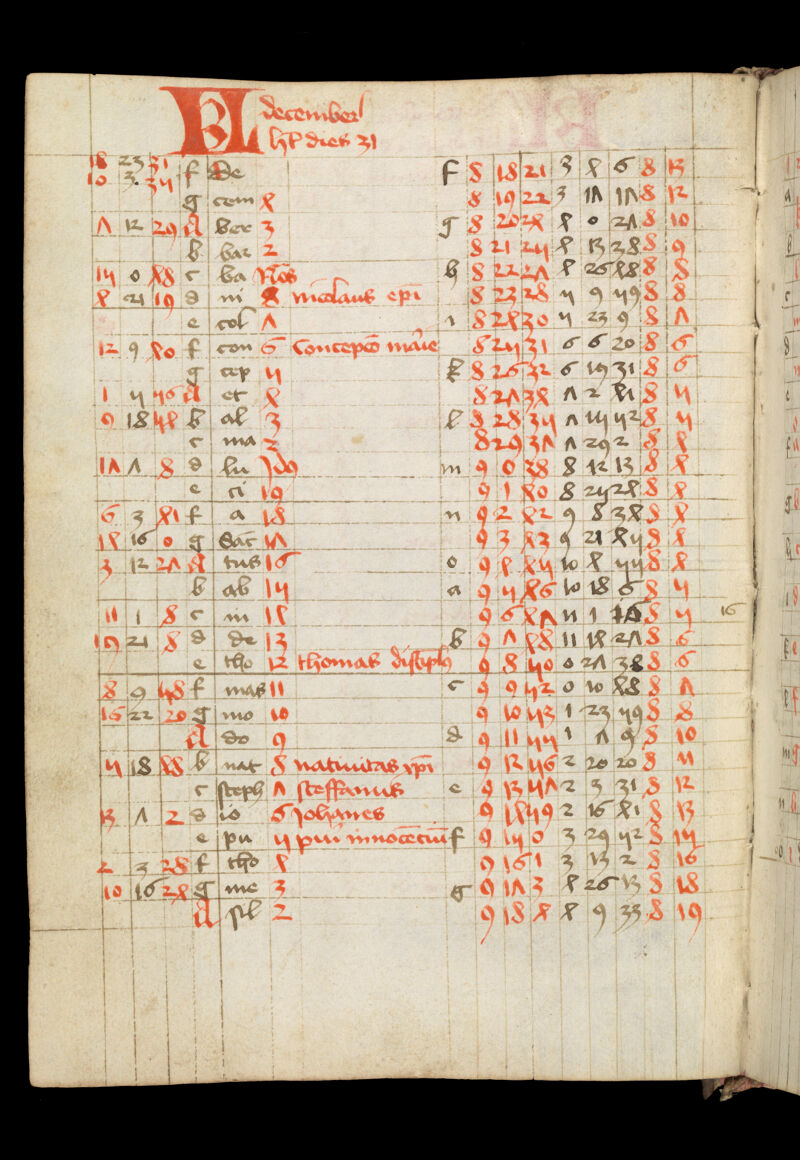 KL december
ht dies 31
18 23 31
10 3 35 f de f 8 18 21 3 4 6 8 13
g cem 4 8 19 22 3 17 17 8 12
7 12 29 A ber 3 g 8 20 24 4 0 27 8 10
b bar 2 8 21 25 4 13 38 8 9
15 0 48 c ba Nōs h 8 22 27 4 26 48 8 8
4 21 19 d ni 8 nicolaus epī 8 23 28 5 9 59 8 8
e col 7 i 8 24 30 5 23 9 8 7
12 9 40 f con 6 Concepcō marie 8 25 31 6 6 20 8 6
g cep 5 k 8 26 32 6 19 31 8 6
1 5 56 A et 4 8 27 34 7 2 41 8 5
9 18 54 b al 3 l 8 28 35 7 15 52 8 5
c ma 2 8 29 37 7 29 2 8 4
17 7 8 d lu Idꝰ m 9 0 38 8 12 13 8 4
e ci 19 9 1 40 8 25 24 8 4
6 3 41 f a 18 n 9 2 42 9 8 34 8 4
14 16 0 g sac 17 9 3 43 9 21 45 8 4
3 12 27 A tus 16 o 9 4 45 10 4 55 8 4
b ab 15 a 9 5 46 10 18 6 8 5
11 1 8 c in 14 9 6 47 11 1 16 8 5 16
19 21 8 d de 13 b 9 7 48 11 14 27 8 6
e tho 12 thomas 9 8 50 0 27 38 8 6
8 9 58 f mas 11 c 9 9 52 0 10 48 8 7
16 22 20 g mo 10 9 10 53 1 23 59 8 8
A do 9 d 9 11 55 1 7 9 8 10
5 18 48 b nat 8 nativitas xpī 9 12 56 2 20 20 8 11
c steph 7 steffanus e 9 13 57 2 3 31 8 12
13 7 2 d io 6 Johānes 9 14 59 2 16 41 8 13
e pu 5 puī innocētiū f 9 15 0 3 29 52 8 15
2 3 28 f tho 4 9 16 1 3 13 2 8 16
10 16 24 g me 3 g 9 17 3 4 26 13 8 18
A sil 2 9 18 4 4 9 33 8 19